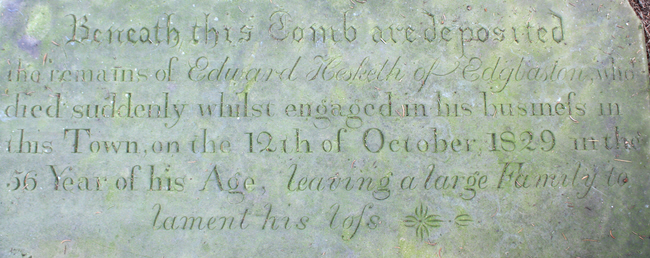 Beneath this Tomb are deposited
the remains of Edward Hesketh of Edgbaston, who
died suddenly whilst engaged in his busineſs in
this Town, on the 12th of October, 1829 in the
56 Year of his Age, leaving a large Family to
lament his loſs